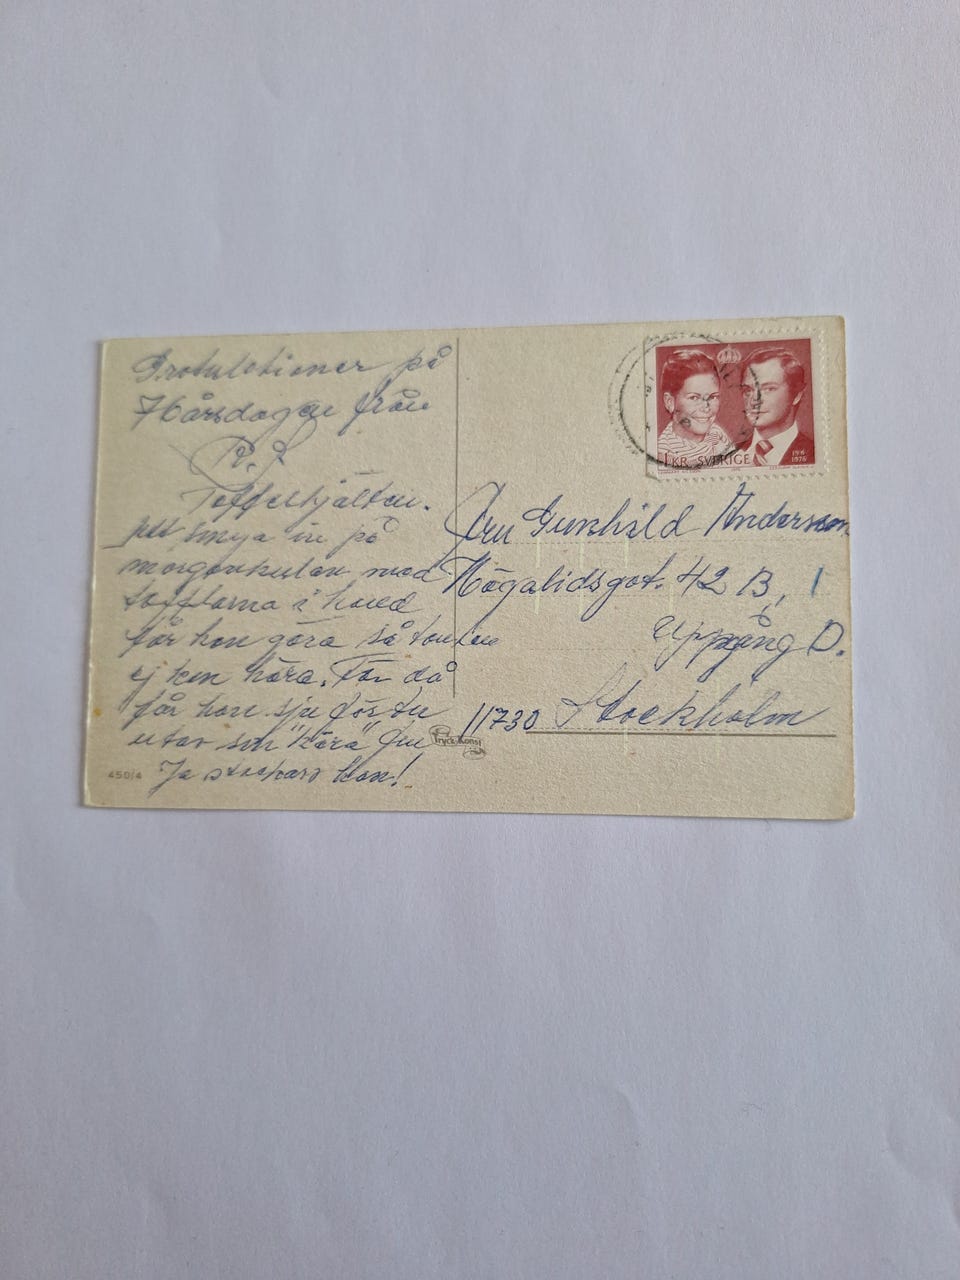 Gratulationer på
76årsdagen från
R. J.
Toffelhjälten.
Att smyga in på
morgonkulan med
tofflorna i hand
får han göra så tanten
ej kan höra. För då
får han sju för tu
utav sin "kära" fru
Ja stackars han!
450/4
1 KR SVERIGE
19 6
1976
Fru Gunhild Andersson
Högalidsgat. 42 B, 1
Uppgång D.
11730 Stockholm
TryckKonst